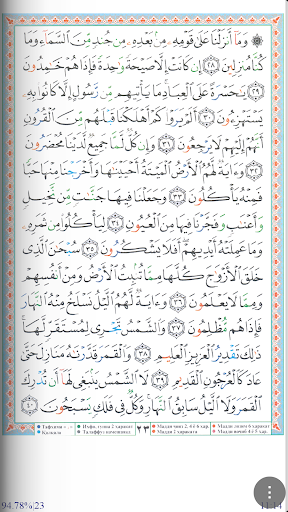 ۞ وَمَآ أَنزَلْنَا عَلَىٰ قَوْمِهِۦ مِنۢ بَعْدِهِۦ مِن جُندٍ مِّنَ ٱلسَّمَآءِ وَمَا
كُنَّا مُنزِلِينَ ﴿٢٨﴾ إِن كَانَتْ إِلَّا صَيْحَةً وَٰحِدَةً فَإِذَا هُمْ خَٰمِدُونَ
﴿٢٩﴾ يَٰحَسْرَةً عَلَى ٱلْعِبَادِ مَا يَأْتِيهِم مِّن رَّسُولٍ إِلَّا كَانُوا۟ بِهِۦ
يَسْتَهْزِءُونَ ﴿٣٠﴾ أَلَمْ يَرَوْا۟ كَمْ أَهْلَكْنَا قَبْلَهُم مِّنَ ٱلْقُرُونِ
أَنَّهُمْ إِلَيْهِمْ لَا يَرْجِعُونَ ﴿٣١﴾ وَإِن كُلٌّ لَّمَّا جَمِيعٌ لَّدَيْنَا مُحْضَرُونَ
﴿٣٢﴾ وَءَايَةٌ لَّهُمُ ٱلْأَرْضُ ٱلْمَيْتَةُ أَحْيَيْنَٰهَا وَأَخْرَجْنَا مِنْهَا حَبًّا
فَمِنْهُ يَأْكُلُونَ ﴿٣٣﴾ وَجَعَلْنَا فِيهَا جَنَّٰتٍ مِّن نَّخِيلٍ
وَأَعْنَٰبٍ وَفَجَّرْنَا فِيهَا مِنَ ٱلْعُيُونِ ﴿٣٤﴾ لِيَأْكُلُوا۟ مِن ثَمَرِهِۦ
وَمَا عَمِلَتْهُ أَيْدِيهِمْ أَفَلَا يَشْكُرُونَ ﴿٣٥﴾ سُبْحَٰنَ ٱلَّذِى
خَلَقَ ٱلْأَزْوَٰجَ كُلَّهَا مِمَّا تُنۢبِتُ ٱلْأَرْضُ وَمِنْ أَنفُسِهِمْ
وَمِمَّا لَا يَعْلَمُونَ ﴿٣٦﴾ وَءَايَةٌ لَّهُمُ ٱلَّيْلُ نَسْلَخُ مِنْهُ ٱلنَّهَارَ
فَإِذَا هُم مُّظْلِمُونَ ﴿٣٧﴾ وَٱلشَّمْسُ تَجْرِى لِمُسْتَقَرٍّ لَّهَا
ذَٰلِكَ تَقْدِيرُ ٱلْعَزِيزِ ٱلْعَلِيمِ ﴿٣٨﴾ وَٱلْقَمَرَ قَدَّرْنَٰهُ مَنَازِلَ حَتَّىٰ
عَادَ كَٱلْعُرْجُونِ ٱلْقَدِيمِ ﴿٣٩﴾ لَا ٱلشَّمْسُ يَنۢبَغِى لَهَآ أَن تُدْرِكَ
ٱلْقَمَرَ وَلَا ٱلَّيْلُ سَابِقُ ٱلنَّهَارِ وَكُلٌّ فِى فَلَكٍ يَسْبَحُونَ ﴿٤٠﴾
٢٣
94.78%|23 11:14